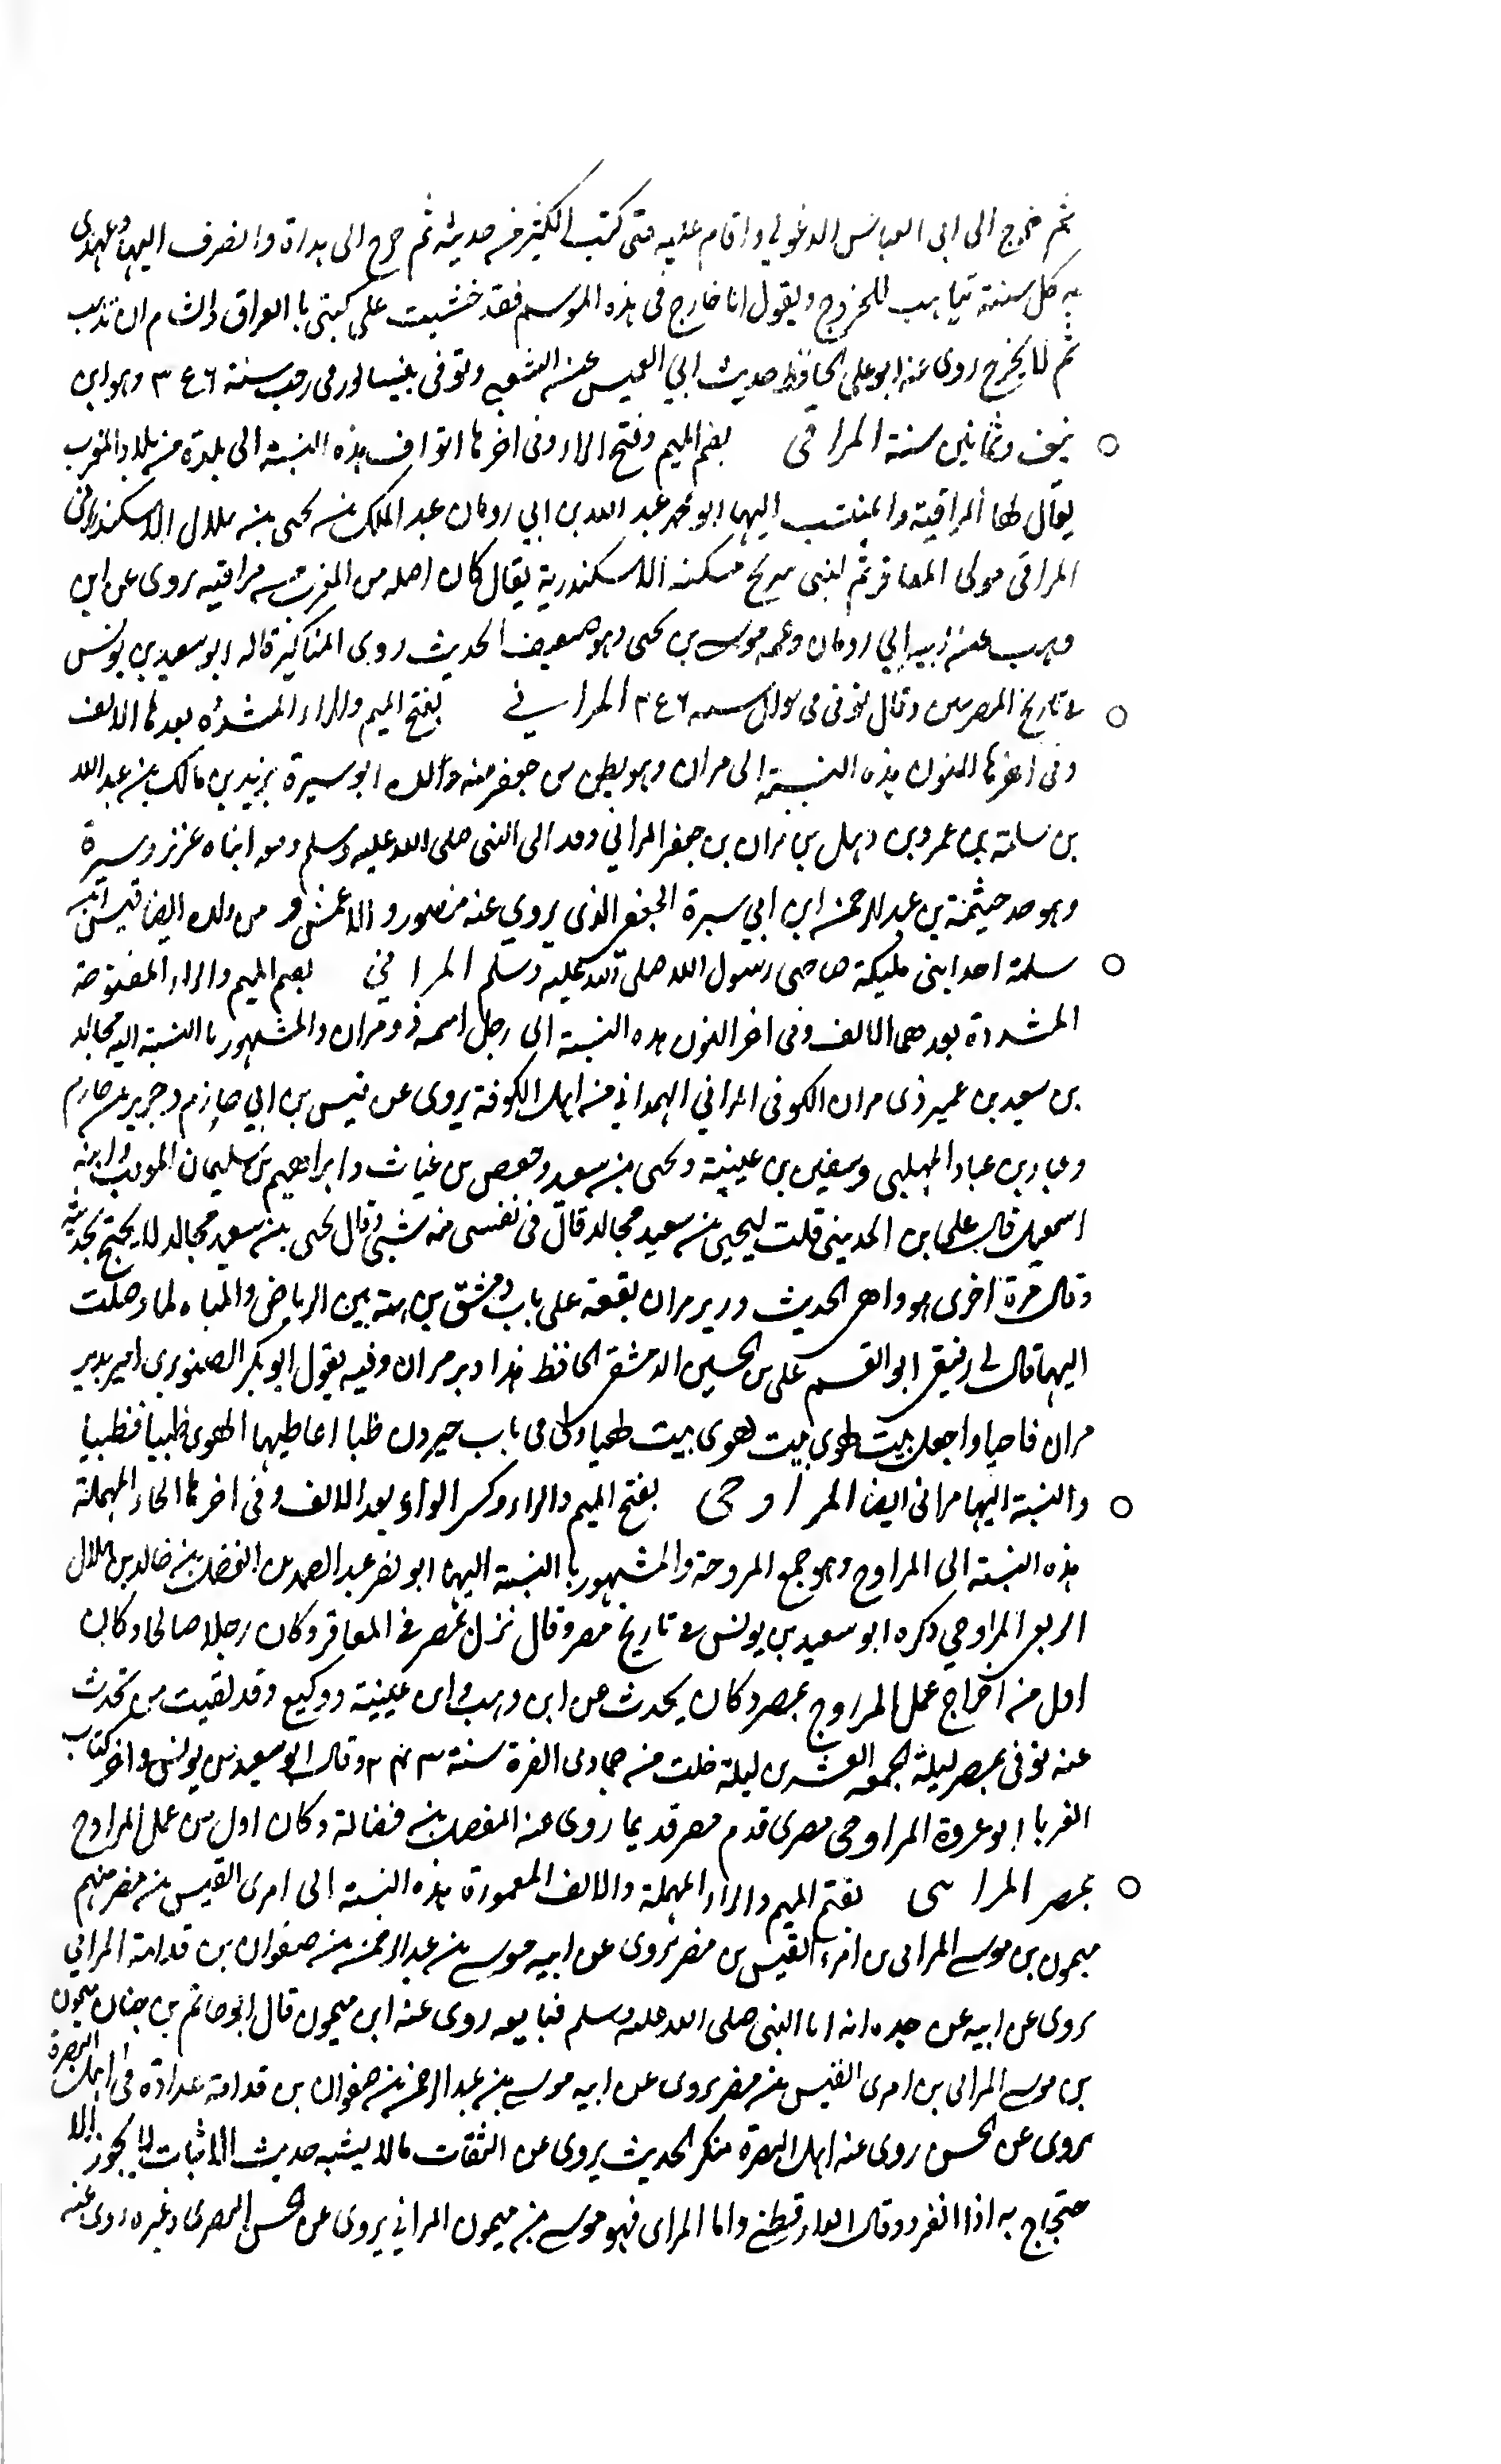 ثم خرج الى ابى العباس الدغولي واقام عليه حتى كتب الكثير من حديثه ثم خرج الى هراة وانصرف اليها وعهدى
به كل سنة يتاهب للخروج ويقول انا خارج فى هذه الموسم فقد خشيت على كتبى با العراق والشام ان تذهب
ثم لا يخرج روى عنه ابو على الحافظ حديث ابي العميس عن الشعبي وتوفى بنيسابور فى رجب سنة ٣٤٦ وهو ابن
نيف وثمانين سنة المراقى بضم الميم وفتح الراء وفى اخرها القاف هذه النسبة الى بلدة من بلاد المغرب
يقال لها المراقية والمنتسب اليها ابو محمد عبد الله بن ابي رومان عبد الملك بن يحيى بن هلال الاسكندرانى
المراقى مولى المعافر ثم لبنى سريح سكن الاسكندرية يقال كان اصله من المغرب من مراقيه يروى عن ابن
وهب عن ابيه ابي رومان وعمه موسى بن يحيى وهو ضعيف الحديث روى المناكير قاله ابو سعيد بن يونس
فى تاريخ المصريين وقال توفى فى شوال سنه ٢٤٦ المرانى بفتح الميم والراء المشدده بعدها الالف
وفى اخرها النون هذه النسبة الى مران وهو بطن من جعفر منه ابو سبرة يزيد بن مالك بن عبد الله
بن سلمة بن عمرو بن ذهل بن مران بن جعفر المرانى وفد الى النبى صلى الله عليه وسلم ومعه ابناه عزيز وسبرة
وهو جد خيثمة بن عبد الرحمن ابن ابي سبرة الجعفى الذى يروي عنه منصور والاعمش و من ولده ايضا قيس بن
سلمة احد ابنى مليكة صاحبى رسول الله صلى الله عليه وسلم المرانى بضم الميم والراء المفتوحة
المشددة بعدها الالف وفى اخر النون هذه النسبة الى رجل اسمه ذو مران والمشهور با النسبة اليه مجالد
بن سعيد بن عمير ذى مران الكوفى المرانى الهمدانى من اهل الكوفة يروى عن قيس بن ابي حازم وجرير بن حازم
وعباد بن عباد المهلبى وسفين بن عيينة ويحيى بن سعيد وحفص بن غياث وابراهيم بن سليمان المودب وابنه
اسمعيل قال على بن المدينى قلت ليحيى بن سعيد مجالد قال فى نفسى منه شى وقال يحيى بن سعيد مجالد لا يحتج بحديثه
وقال مرة اخرى هو واهى الحديث ودير مران بقعة على باب دمشق بين الرياض والمياه لما وصلت
اليها قال لى رفيقى ابو القسم على بن الحسين الدمشقى الحافظ هذا دير مران وفيه يقول ابو بكر الصنوبرى امير بدير
مران فاحيا واجعل بيت لهوى بيت لهيا ولى فى باب جيرون ظبا اعاطيها الهوى ظبيا فظبيا
والنسبة اليها مرانى ايضا المراوحى بفتح الميم والراء وكسر الواو بعد الالف وفى اخرها الحاء المهملة
هذه النسبة الى المراوح وهو جمع المروحة والمشهور با النسبة اليها ابو نصر عبد الصمد بن الفضل بن خالد بن هلال
الربعى المراوحي ذكره ابو سعيد بن يونس فى تاريخ مصر وقال نزل بمصر فى المعافر وكان رجلا صالحا وكان
اول من اخرج عمل المراوح بمصر وكان يحدث عن ابن وهب وابن عيينة ووكيع وقد لقيت من يحدث
عنه توفى بمصر ليلة الجمعه لعشرين ليلة خلت من جمادى الاخرة سنة ٢٤٣ وقال ابو سعيد بن يونس فى اخر كتاب
الغربا ابو عروة المراوحى مصرى قدم مصر قديما روى عنه المفضل بن فضالة وكان اول من عمل المراوح
بمصر المراىى بفتح الميم والراء المهملة والالف الممدودة هذه النسبة الى امرى القيس بن مضر منهم
ميمون بن موسى المراىى من امرء القيس بن مضر يروى عن ابيه موسى بن عبد الرحمن بن صفوان بن قدامة المرائي
يروى عن ابيه عن جده انه اتا النبى صلى الله عليه وسلم فبايعه روى عنه ابن ميمون قال ابو حاتم بن حبان ميمون
بن موسى المراىى بن امرى القيس بن مضر يروى عن ابيه موسى بن عبد الرحمن بن صفوان بن قدامة عداده فى اهل البصرة
يروى عن الحسن روى عنه اهل البصرة منكر الحديث يروى عن الثقات مالا يشبه حديث الاثبات لا يجوز الا
حتجاج به اذا انفرد وقال الدارقطنى واما المراىى فهو موسى بن ميمون المرائي يروى عن الحسن البصرى وغيره روى عنه